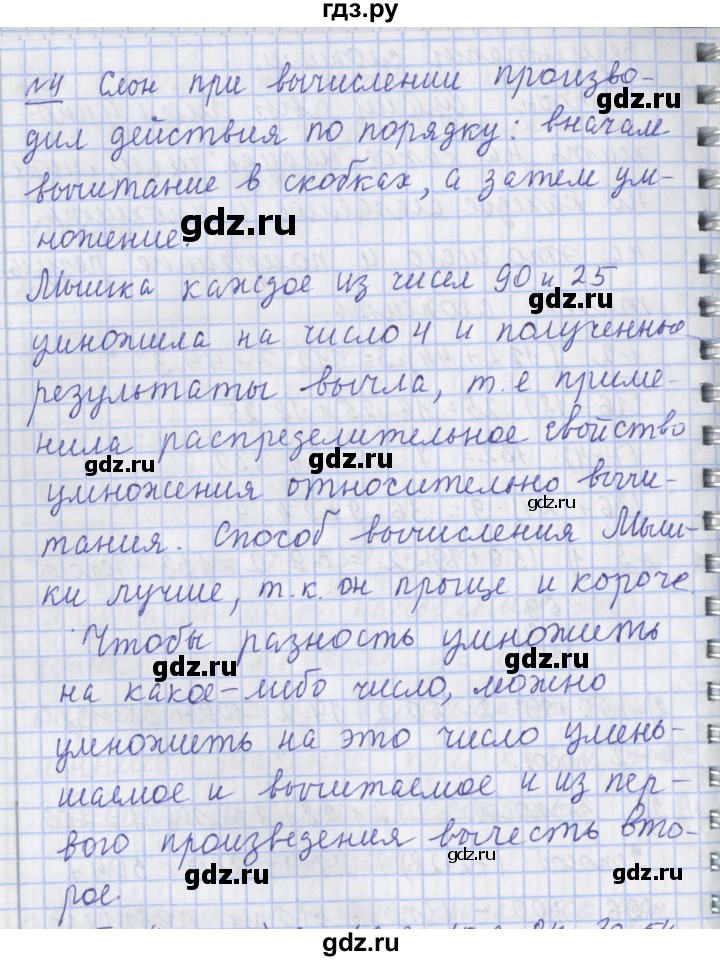 гдз.ру
№4 Слон при вычислении произво-
gdz.ru
дил действия по порядку: вначале
вычитание в скобках, а затем ум-
gdz.ru
ножение.
Мышка каждое из чисел 90 и 25
умножила на число 4 и полученные
результаты вычла, т.е приме-
нила распределительное свойство
gdz.ru gdz.ru
умножения относительно вычи-
gdz.ru
тания. Способ вычисления Мыш-
ки лучше, т.к. он проще и короче.
gdz.ru
Чтобы разность умножить
gdz.ru gdz.ru
на какое-либо число, можно
умножить на это число умень-
шаемое и вычитаемое и из пер-
вого произведения вычесть вто-
gdz.ru
рое.
gdz.ru
gdz.ru